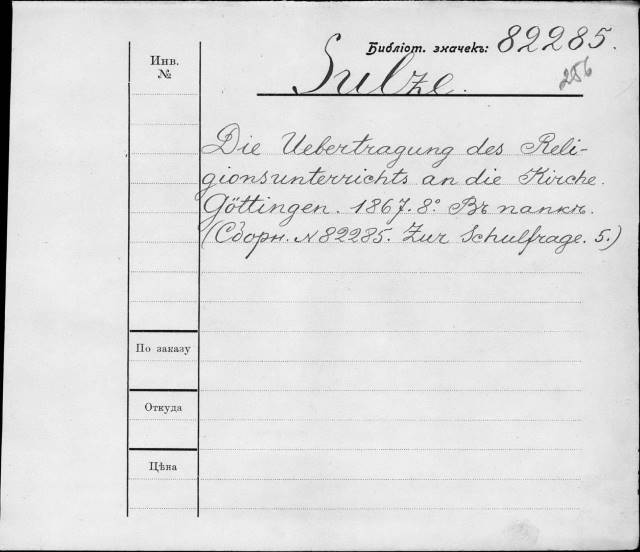 Библіот. значекъ: 82285.
256
Инв.
№
Sulze.
Die Uebertragung des Reli-
gionsunterrichts an die Kirche.
Göttingen. 1867. 8º. Въ папкѣ.
(Сборн. № 82285. Zur Schulfrage. 5.)
По заказу
Откуда
Цѣна